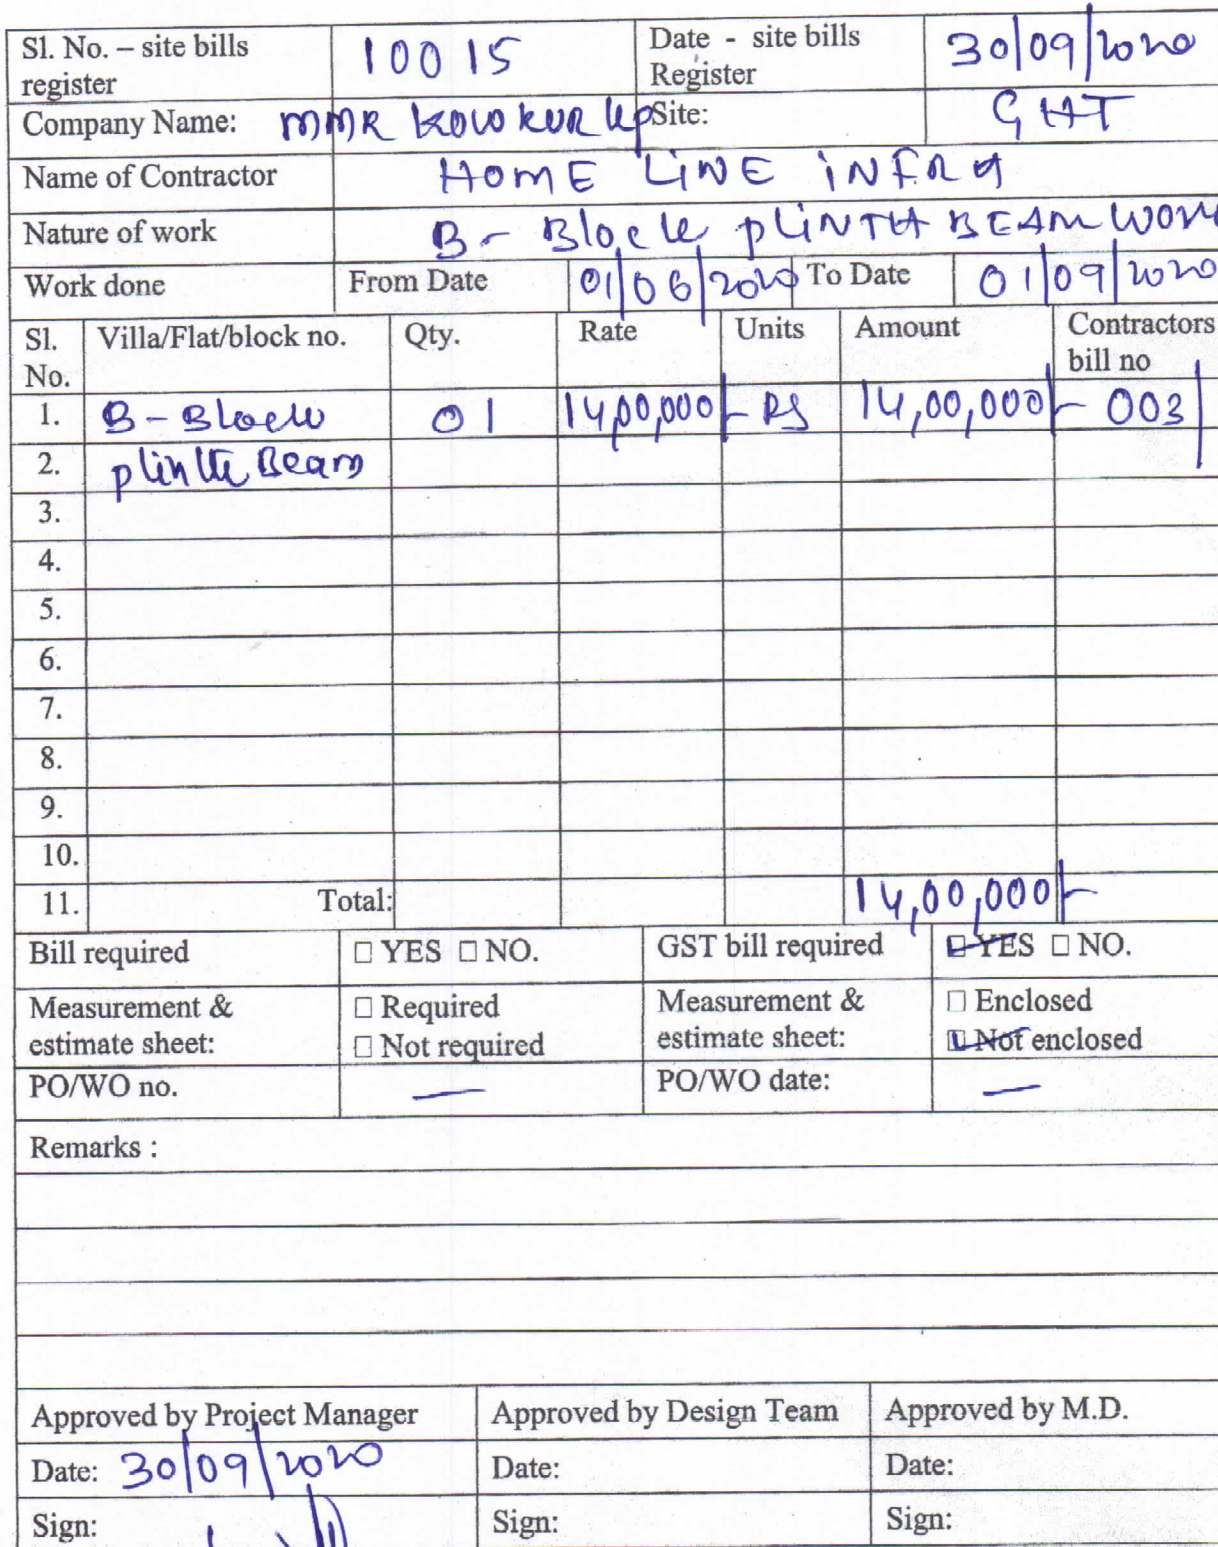 Sl. No. – site bills register 10015 Date - site bills Register 30/09/2020
Company Name: MMR KOWKUR llp Site: GHT
Name of Contractor HOME LINE INFRA
Nature of work B - Block PLINTH BEAM WORK
Work done From Date 01/06/2020 To Date 01/09/2020
Sl. No. Villa/Flat/block no. Qty. Rate Units Amount Contractors bill no
1. B - Block 01 14,00,000/- RS 14,00,000/- 003
2. plinth Beam
3.
4.
5.
6.
7.
8.
9.
10.
11. Total: 14,00,000/-
Bill required □ YES □ NO. GST bill required □ YES □ NO.
Measurement & estimate sheet: □ Required □ Not required Measurement & estimate sheet: □ Enclosed □ Not enclosed
PO/WO no. — PO/WO date: —
Remarks :
Approved by Project Manager Approved by Design Team Approved by M.D.
Date: 30/09/2020 Date: Date:
Sign: Sign: Sign: